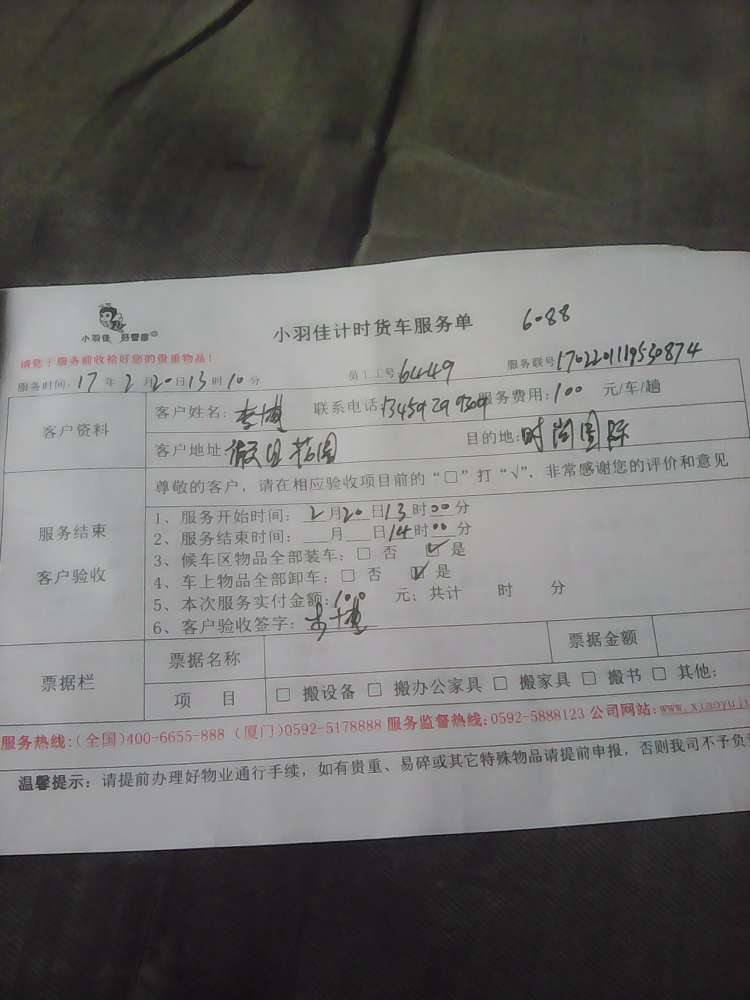 小羽佳 好管家
小羽佳计时货车服务单 6-088
请您于服务前收拾好您的贵重物品！
服务时间：17年2月20日13时10分 员工工号6449 服务联号1702201119530874
客户资料
客户姓名： 联系电话 服务费用：100 元/车/趟
客户地址 花园 目的地：时尚国际
服务结束
客户验收
尊敬的客户，请在相应验收项目前的“□”打“√”，非常感谢您的评价和意见
1、服务开始时间：2月20日13时00分
2、服务结束时间：__月__日14时00分
3、候车区物品全部装车：□ 否 ☑ 是
4、车上物品全部卸车：□ 否 ☑ 是
5、本次服务实付金额：100 元；共计 时 分
6、客户验收签字：
票据栏
票据名称 票据金额
项 目 □ 搬设备 □ 搬办公家具 □ 搬家具 □ 搬书 □ 其他：
服务热线：(全国)400-6655-888 (厦门)0592-5178888 服务监督热线：0592-5888123 公司网站：www.xiaoyuj
温馨提示：请提前办理好物业通行手续，如有贵重、易碎或其它特殊物品请提前申报，否则我司不予负